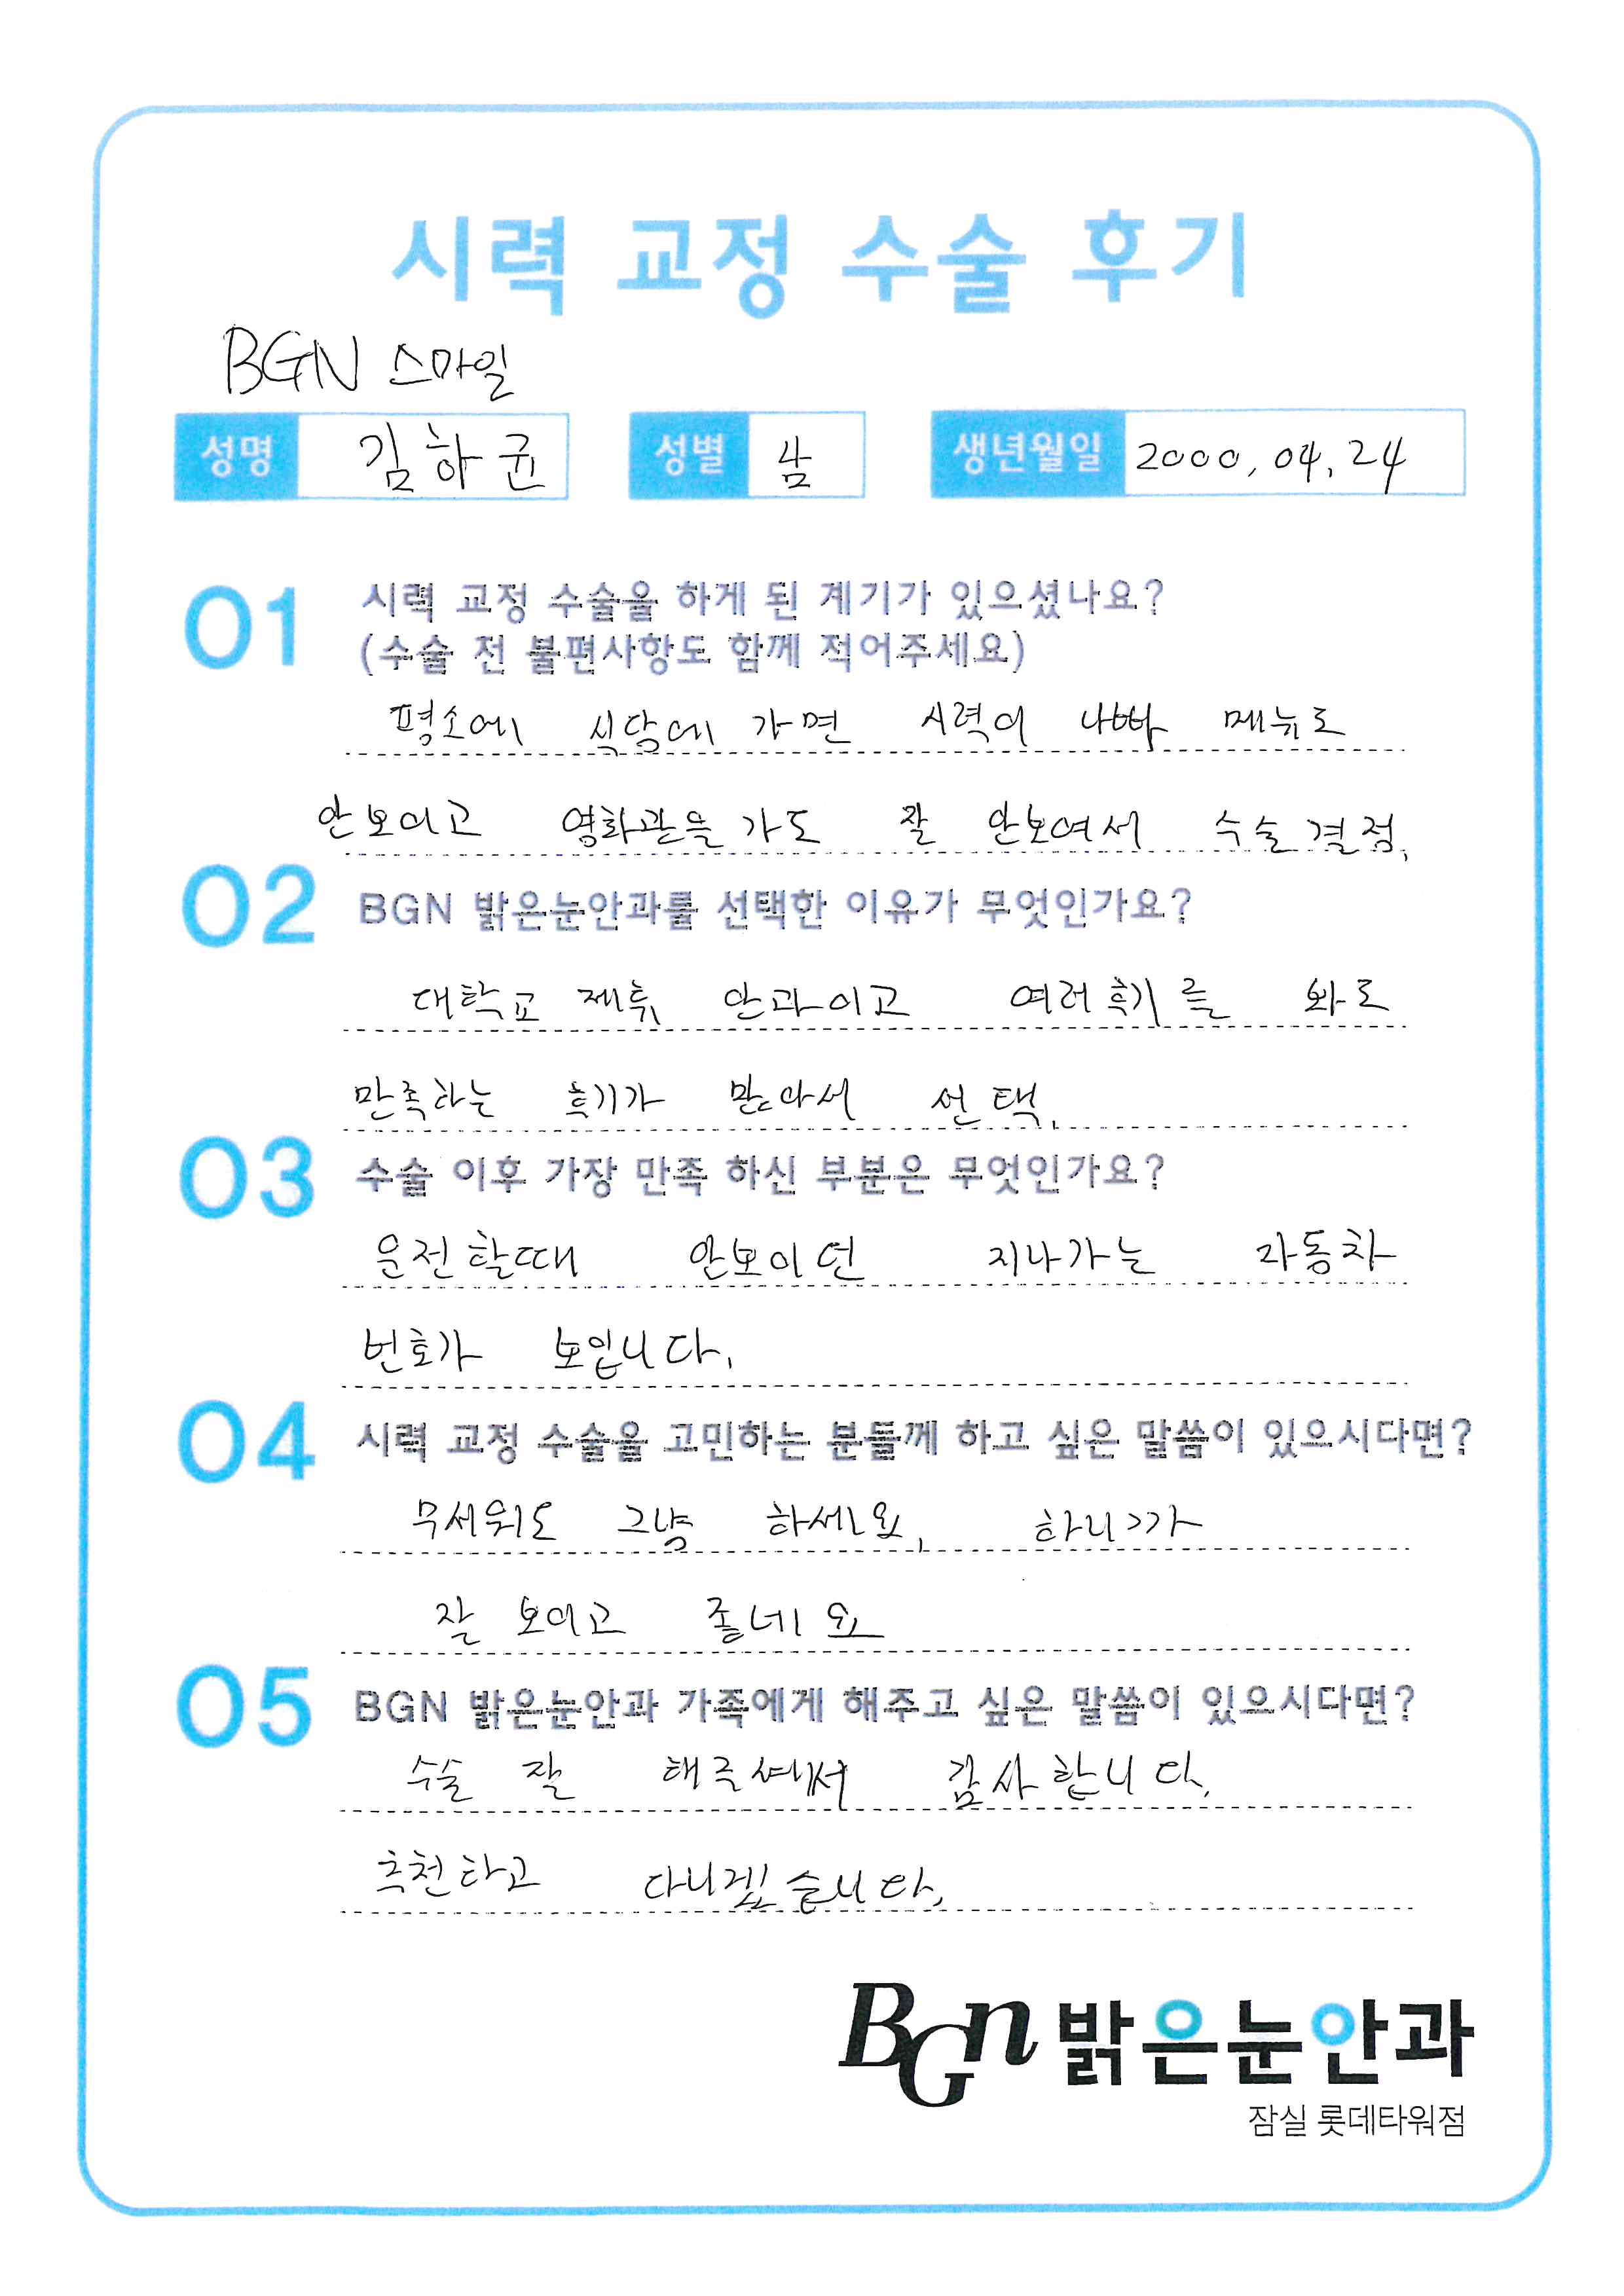 시력 교정 수술 후기
BGN 스마일
성명 김하균 성별 남 생년월일 2000.04.24
01 시력 교정 수술을 하게 된 계기가 있으셨나요?
(수술 전 불편사항도 함께 적어주세요)
평소에 식당에 가면 시력이 나빠 메뉴도
안보이고 영화관을 가도 잘 안보여서 수술 결정.
02 BGN 밝은눈안과를 선택한 이유가 무엇인가요?
대학교 제휴 안과이고 여러 후기를 봐도
만족하는 후기가 많아서 선택.
03 수술 이후 가장 만족 하신 부분은 무엇인가요?
운전할때 안보이던 지나가는 자동차
번호가 보입니다.
04 시력 교정 수술을 고민하는 분들께 하고 싶은 말씀이 있으시다면?
무서워도 그냥 하세요. 하니까
잘 보이고 좋네요
05 BGN 밝은눈안과 가족에게 해주고 싶은 말씀이 있으시다면?
수술 잘 해주셔서 감사합니다.
추천하고 다니겠습니다.
BGN 밝은눈안과
잠실 롯데타워점